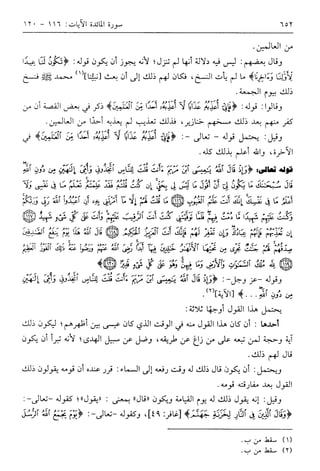 ٦٥٢ سورة المائدة الآيات: ١١٦ - ١٢٠
من العالمين.
وقال بعضهم: ليس فيه دلالة أنها لم تنزل؛ لأنه يجوز أن يكون قوله: ﴿تَكُونُ لَنَا عِيدًا
لِأَوَّلِنَا وَءَاخِرِنَا﴾ ما لم يأت النسخ، فكان لهم ذلك إلى أن بعث [نبينا](١) محمد ﷺ فنسخ
ذلك بيوم الجمعة.
وقالوا: قوله: ﴿فَإِنِّي أُعَذِّبُهُ عَذَابًا لَا أُعَذِّبُهُ أَحَدًا مِنَ الْعَالَمِينَ﴾ ذكر في بعض القصة أن من
كفر منهم بعد ذلك مسخهم خنازير، فذلك تعذيب لم يعذبه أحدًا من العالمين.
وقيل: يحتمل قوله - تعالى -: ﴿فَإِنِّي أُعَذِّبُهُ عَذَابًا لَا أُعَذِّبُهُ أَحَدًا مِنَ الْعَالَمِينَ﴾ في
الآخرة، والله أعلم بذلك كله.
قوله تعالى: ﴿وَإِذْ قَالَ اللَّهُ يَعِيسَى ابْنَ مَرْيَمَ ءَأَنتَ قُلْتَ لِلنَّاسِ اتَّخِذُونِي وَأُمِّيَ إِلَهَيْنِ مِن دُونِ اللَّهِ
قَالَ سُبْحَنَكَ مَا يَكُونُ لِي أَنْ أَقُولَ مَا لَيْسَ لِي بِحَقٍّ إِن كُنتُ قُلْتُهُ فَقَدْ عَلِمْتَهُ تَعْلَمُ مَا فِي نَفْسِي وَلَا
أَعْلَمُ مَا فِي نَفْسِكَ إِنَّكَ أَنتَ عَلَّمُ الْغُيُوبِ ﴿١١٦﴾ مَا قُلْتُ لَهُمْ إِلَّا مَا أَمَرْتَنِي بِهِ أَنِ اعْبُدُوا اللَّهَ رَبِّي وَرَبَّكُمْ
وَكُنتُ عَلَيْهِمْ شَهِيدًا مَا دُمْتُ فِيهِمْ فَلَمَّا تَوَفَّيْتَنِي كُنتَ أَنتَ الرَّقِيبَ عَلَيْهِمْ وَأَنتَ عَلَى كُلِّ شَيْءٍ شَهِيدٌ ﴿١١٧﴾
إِن تُعَذِّبْهُمْ فَإِنَّهُمْ عِبَادُكَ وَإِن تَغْفِرْ لَهُمْ فَإِنَّكَ أَنتَ الْعَزِيزُ الْحَكِيمُ ﴿١١٨﴾ قَالَ اللَّهُ هَذَا يَوْمُ يَنفَعُ الصَّدِقِينَ
صِدْقُهُمْ لَهُمْ جَنَّتٌ تَجْرِي مِن تَحْتِهَا الْأَنْهَرُ خَلِدِينَ فِيهَا أَبَدًا رَّضِيَ اللَّهُ عَنْهُمْ وَرَضُوا عَنْهُ ذَلِكَ الْفَوْزُ الْعَظِيمُ
﴿١١٩﴾ لِلَّهِ مُلْكُ السَّمَوَتِ وَالْأَرْضِ وَمَا فِيهِنَّ وَهُوَ عَلَى كُلِّ شَيْءٍ قَدِيرٌ ﴿١٢٠﴾﴾
وقوله - عز وجل -: ﴿وَإِذْ قَالَ اللَّهُ يَعِيسَى ابْنَ مَرْيَمَ ءَأَنتَ قُلْتَ لِلنَّاسِ اتَّخِذُونِي وَأُمِّيَ إِلَهَيْنِ
مِن دُونِ اللَّهِ . . .﴾ [الآية](٢).
يحتمل هذا القول أوجهًا ثلاثة:
أحدها: أن كان هذا القول منه في الوقت الذي كان عيسى بين أظهرهم؛ ليكون ذلك
آية وحجة لمن تبعه على من زاغ عن طريقه، وضل عن سبيل الهدى؛ لأنه تبرأ أن يكون
قال لهم ذلك.
ويحتمل: أن يكون قال ذلك له وقت رفعه إلى السماء: قرر عنده أن قومه يقولون ذلك
القول بعد مفارقته قومه.
وقيل: إنه يقول ذلك له يوم القيامة ويكون «قال» بمعنى: «يقول»؛ كقوله -تعالى-:
﴿وَقَالَ الَّذِينَ فِي النَّارِ لِخَزَنَةِ جَهَنَّمَ﴾ [غافر: ٤٩]، وكقوله -تعالى-: ﴿يَوْمَ يَجْمَعُ اللَّهُ الرُّسُلَ
(١) سقط من ب.
(٢) سقط من ب.